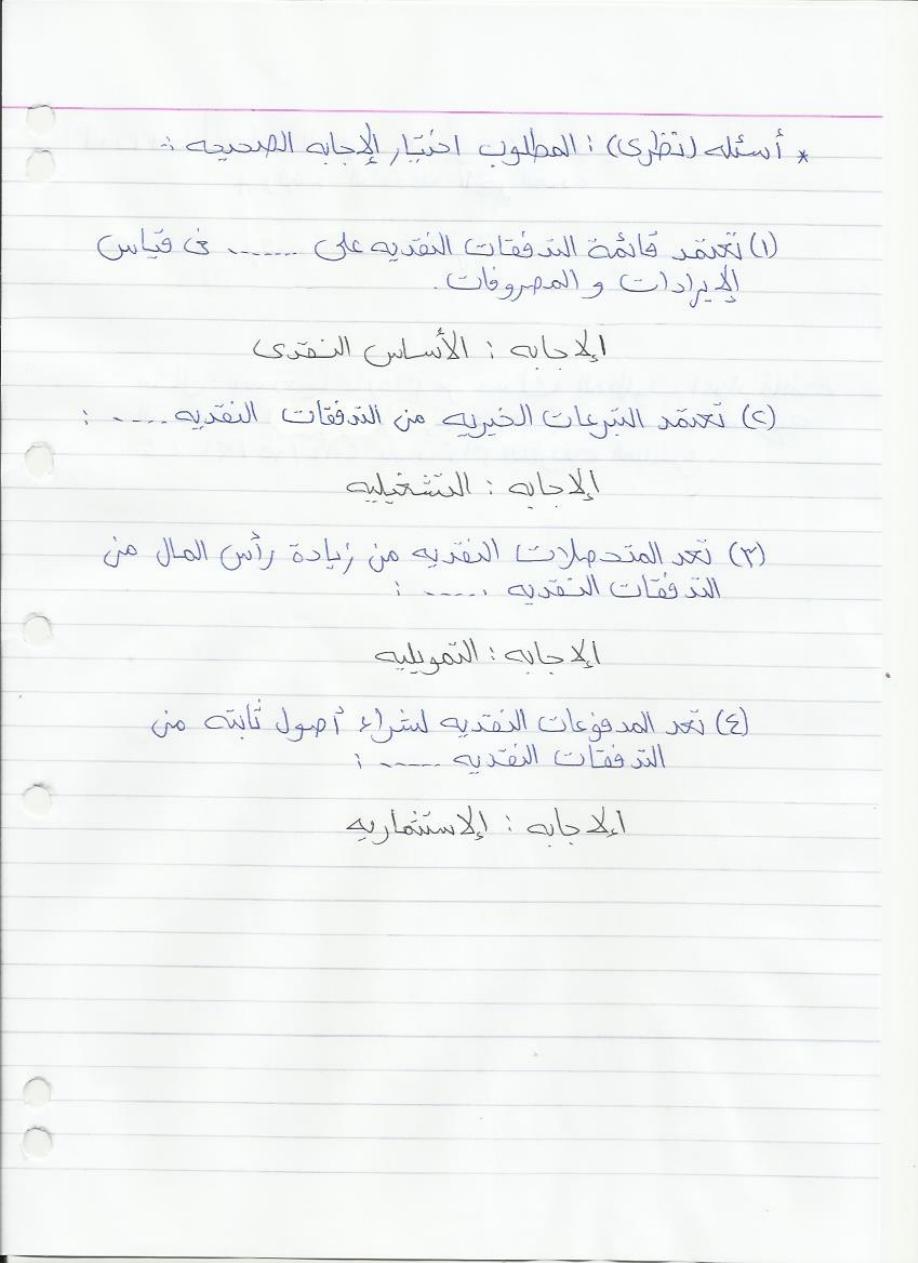 * أسئله (نظرى) : المطلوب اختيار الإجابه الصحيحه :-
(١) تعتمد قائمة التدفقات النقديه على ....... فى قياس
الإيرادات و المصروفات.
الإجابه : الأساس النقدى
(٢) تعتمد التبرعات الخيريه من التدفقات النقديه ..... :
الإجابه : التشغيليه
(٣) تعد المتحصلات النقديه من زيادة رأس المال من
التدفقات النقديه ...... :
الإجابه : التمويليه
(٤) تعد المدفوعات النقديه لشراء أصول ثابته من
التدفقات النقديه ...... :
الإجابه : الإستثماريه